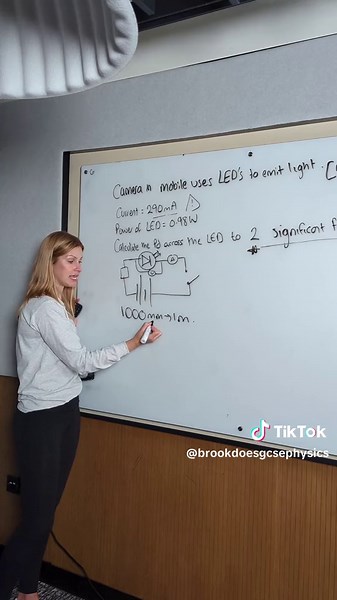 Camera in mobile uses LED's to emit light. [
Current: 290mA !
Power of LED = 0.98W
Calculate the Pd across the LED to 2 significant f
A
V
1000mm → 1m.
TikTok
@brookdoesgcsephysics